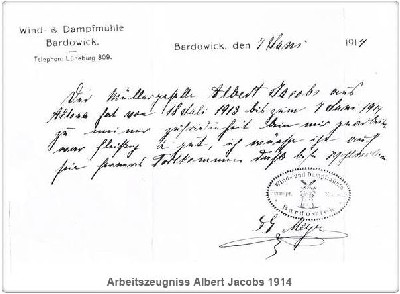 Wind- & Dampfmühle
Bardowick.
Telephon: Lüneburg 309.
Bardowick, den 7 Janr 1914
Der Müllergeselle Albert Jacobs aus
Altona hat von 18 Juli 1913 bis zum 7 Janr 1914
zu meiner zufriedenheit bei mir gearbeitet
war fleißig & gut, ich wünsche ihm auf
sein
Wind- und Dampfmühle
Bardowick
Meyer
Arbeitszeugniss Albert Jacobs 1914